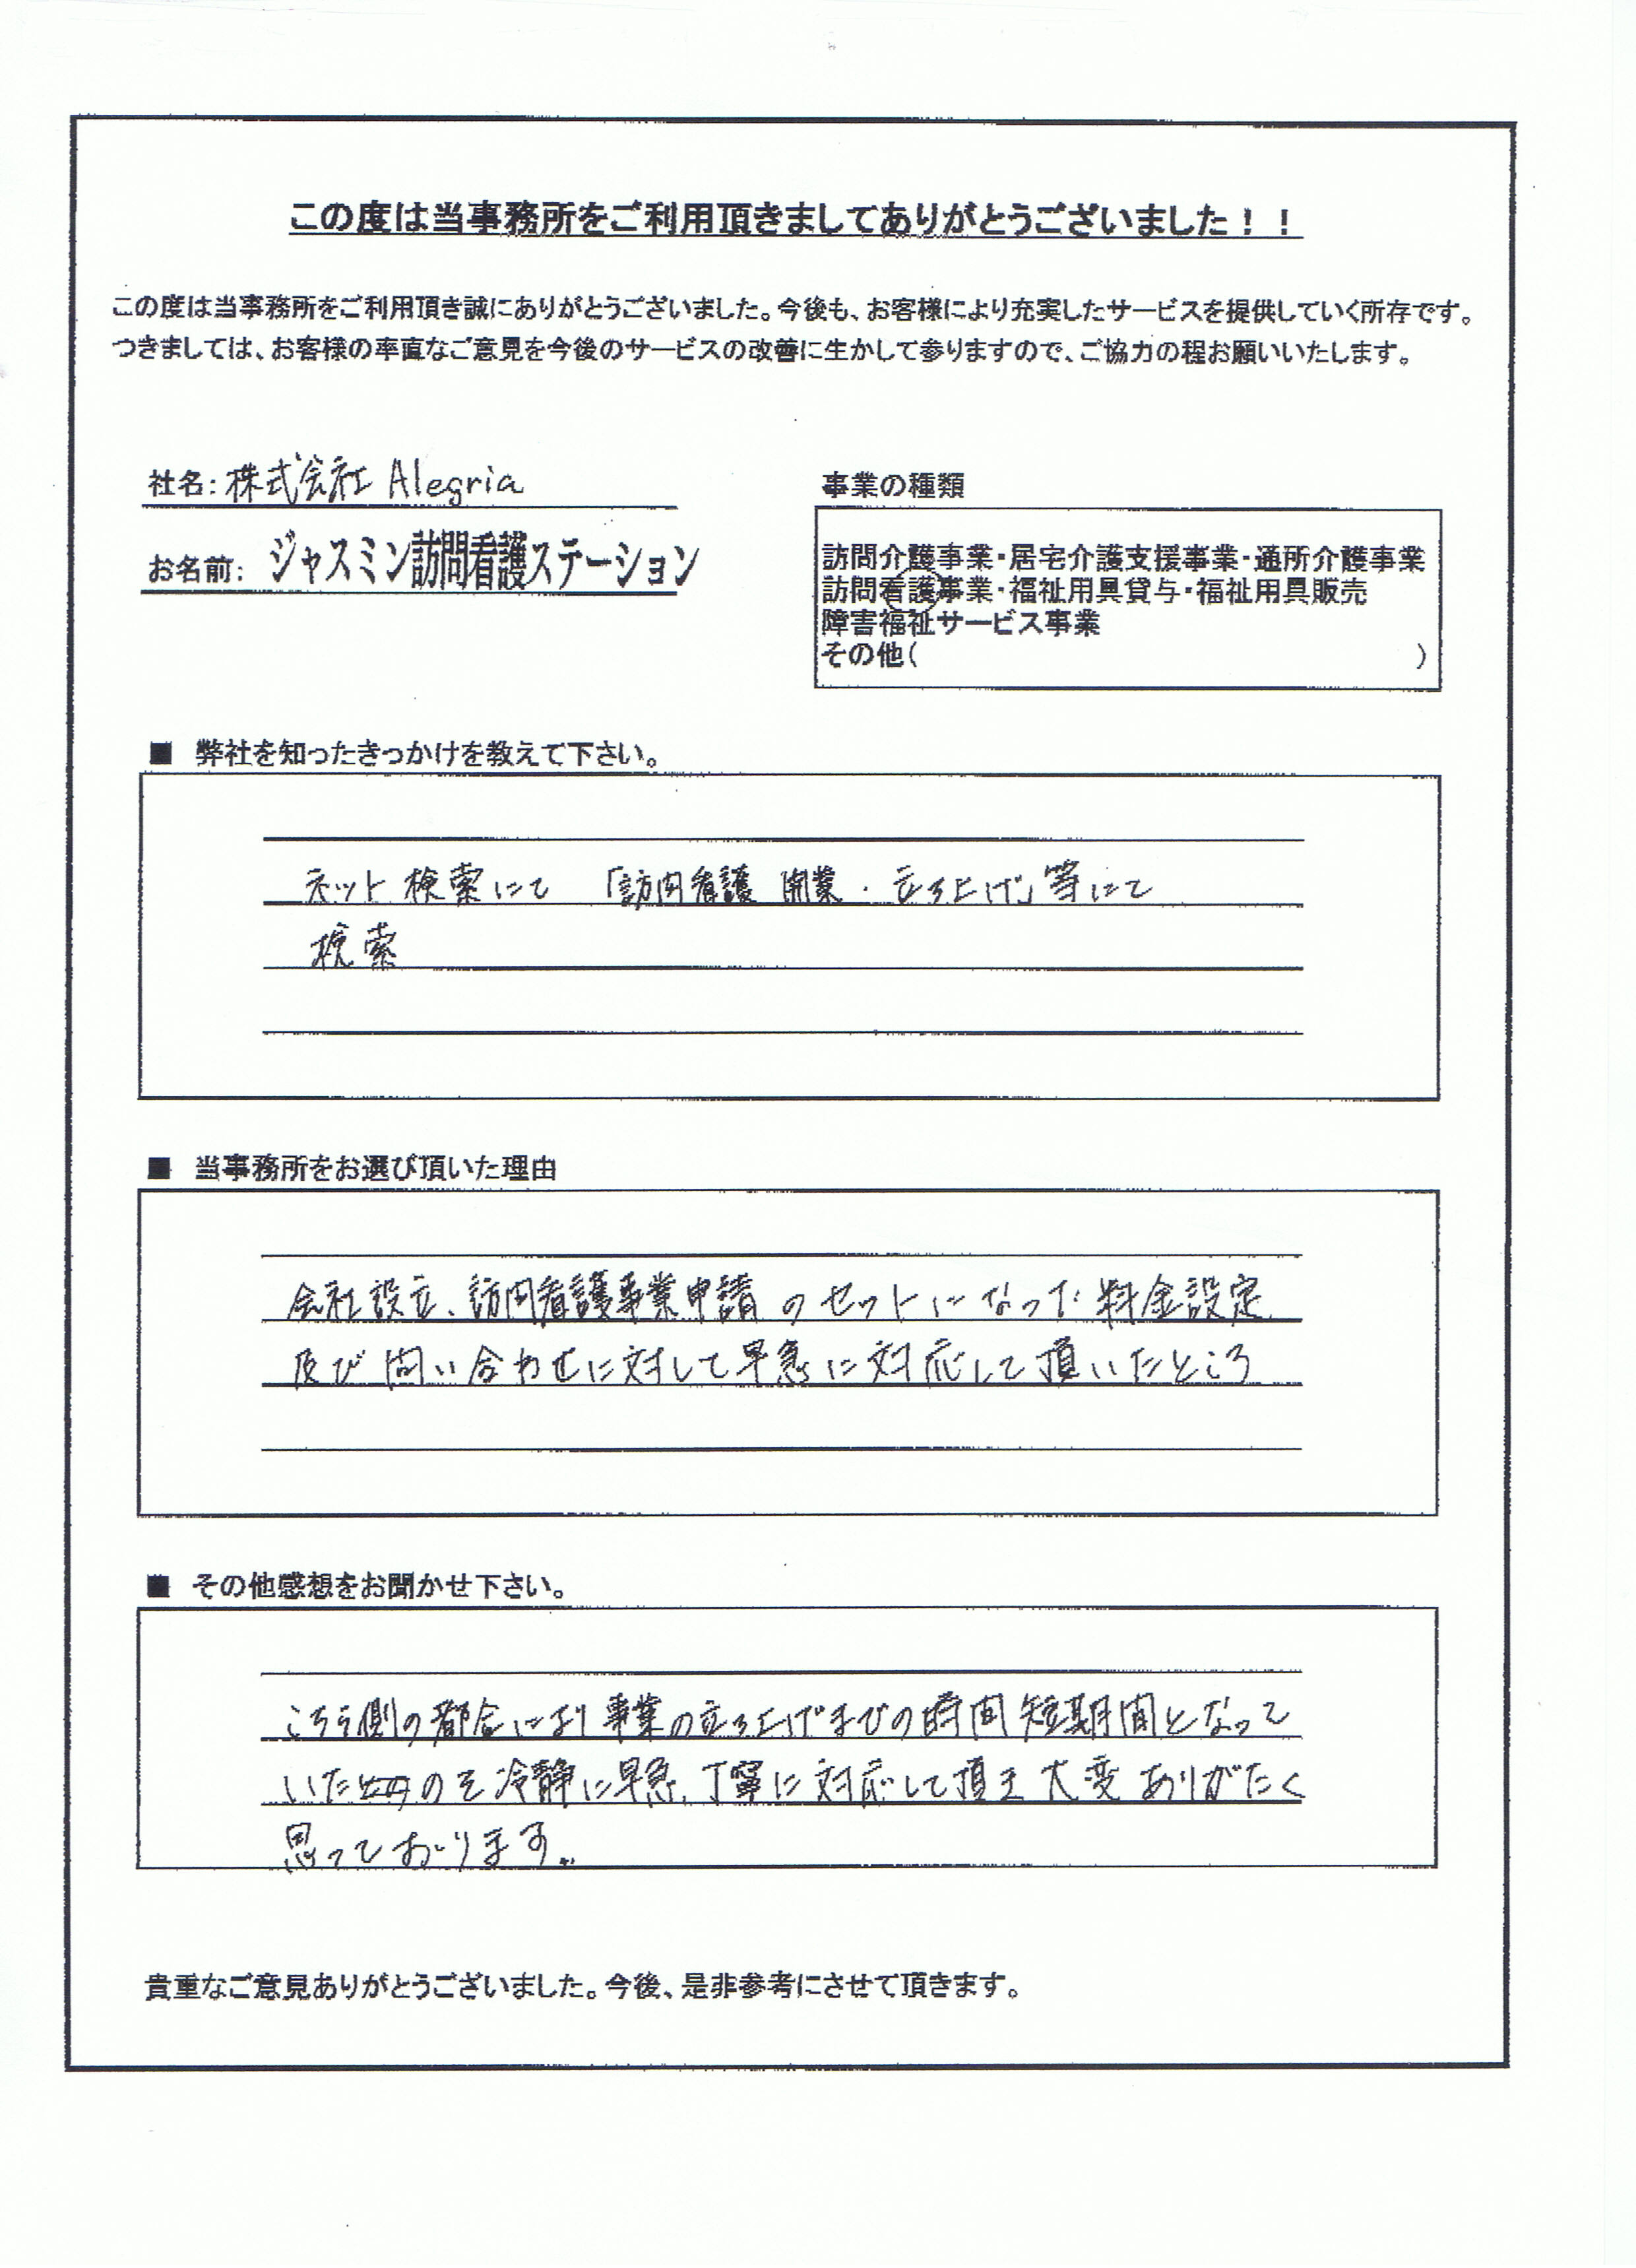 この度は当事務所をご利用頂きましてありがとうございました！！
この度は当事務所をご利用頂き誠にありがとうございました。今後も、お客様により充実したサービスを提供していく所存です。
つきましては、お客様の率直なご意見を今後のサービスの改善に生かして参りますので、ご協力の程お願いいたします。
社名：株式会社 Alegria
お名前：ジャスミン訪問看護ステーション
事業の種類
訪問介護事業・居宅介護支援事業・通所介護事業
訪問看護事業・福祉用具貸与・福祉用具販売
障害福祉サービス事業
その他（　　　　　）
■ 弊社を知ったきっかけを教えて下さい。
ネット検索にて 「訪問看護 開業・立ち上げ」等にて
検索
■ 当事務所をお選び頂いた理由
会社設立、訪問看護事業申請のセットになった料金設定
及び問い合わせに対して早急に対応して頂いたところ
■ その他感想をお聞かせ下さい。
こちら側の都合により事業の立ち上げまでの時間短期間となって
いたのを冷静に早急、丁寧に対応して頂き大変ありがたく
思っております。
貴重なご意見ありがとうございました。今後、是非参考にさせて頂きます。